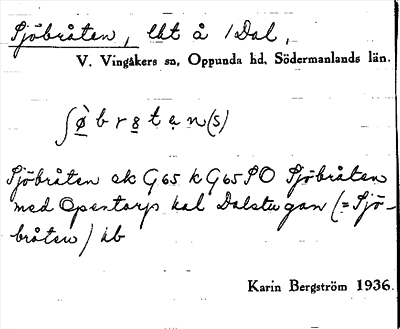 Sjöbråten, lht å /Dal,
V. Vingåkers sn, Oppunda hd, Södermanlands län.
ʃø̀brɞtẹn(s)
Sjöbråten ek G65 k G65 SO Sjöbråten
med Opentorp kal Dalstugan (= Sjö-
bråten) kb
Karin Bergström 1936.